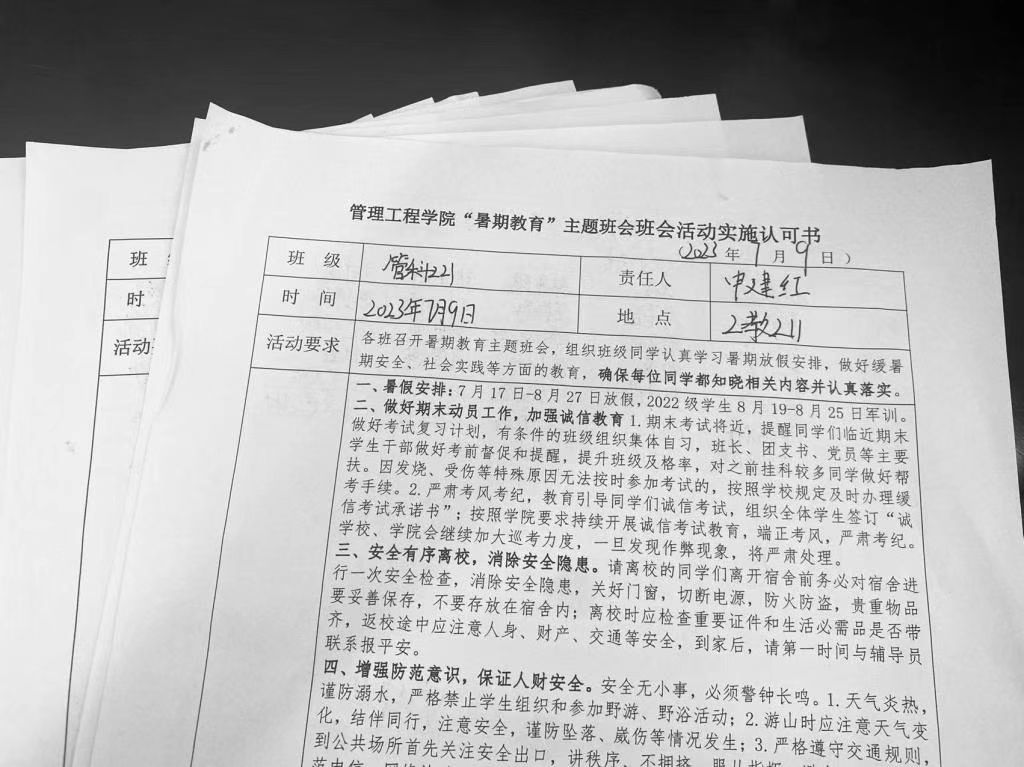 管理工程学院“暑期教育”主题班会班会活动实施认可书
（2023 年 7 月 9 日 ）
班 级 管科221 责任人 申建红
时 间 2023年7月9日 地 点 2教211
活动要求 各班召开暑期教育主题班会，组织班级同学认真学习暑期放假安排，做好缓暑
期安全、社会实践等方面的教育，确保每位同学都知晓相关内容并认真落实。
一、暑假安排：7 月 17 日-8 月 27 日放假，2022 级学生 8 月 19-8 月 25 日军训。
二、做好期末动员工作，加强诚信教育 1.期末考试将近，提醒同学们临近期末
做好考试复习计划，有条件的班级组织集体自习，班长、团支书、党员等主要
学生干部做好考前督促和提醒，提升班级及格率，对之前挂科较多同学做好帮
扶。因发烧、受伤等特殊原因无法按时参加考试的，按照学校规定及时办理缓
考手续。2.严肃考风考纪，教育引导同学们诚信考试，组织全体学生签订“诚
信考试承诺书”；按照学院要求持续开展诚信考试教育，端正考风，严肃考纪。
学校、学院会继续加大巡考力度，一旦发现作弊现象，将严肃处理。
三、安全有序离校，消除安全隐患。请离校的同学们离开宿舍前务必对宿舍进
行一次安全检查，消除安全隐患，关好门窗，切断电源，防火防盗，贵重物品
要妥善保存，不要存放在宿舍内；离校时应检查重要证件和生活必需品是否带
齐，返校途中应注意人身、财产、交通等安全，到家后，请第一时间与辅导员
联系报平安。
四、增强防范意识，保证人财安全。安全无小事，必须警钟长鸣。1.天气炎热，
谨防溺水，严格禁止学生组织和参加野游、野浴活动；2.游山时应注意天气变
化，结伴同行，注意安全，谨防坠落、崴伤等情况发生；3.严格遵守交通规则，
到公共场所首先关注安全出口，讲秩序、不拥挤
班
时
活动